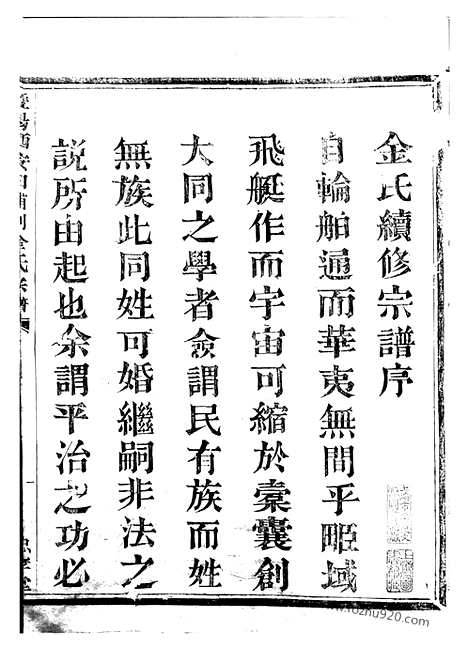 金氏續修宗譜序
自輪舶通而華夷無間乎畛域
飛艇作而宇宙可縮於橐囊創
大同之學者僉謂民有族而姓
無族此同姓可婚繼嗣非法之
說所由起也余謂平治之功必
金氏宗譜
www.fozhu920.com